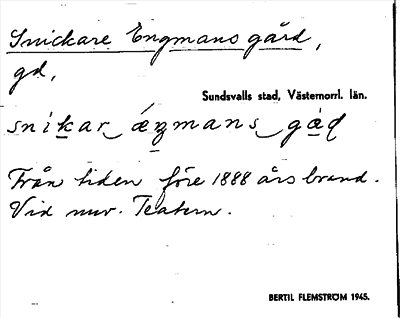 Snickare Engmans gård,
gd,
Sundsvalls stad, Västernorrl. län.
snikar‿æŋmans‿gåd
Från tiden före 1888 års brand.
Vid nuv. Teatern.
BERTIL FLEMSTRÖM 1945.